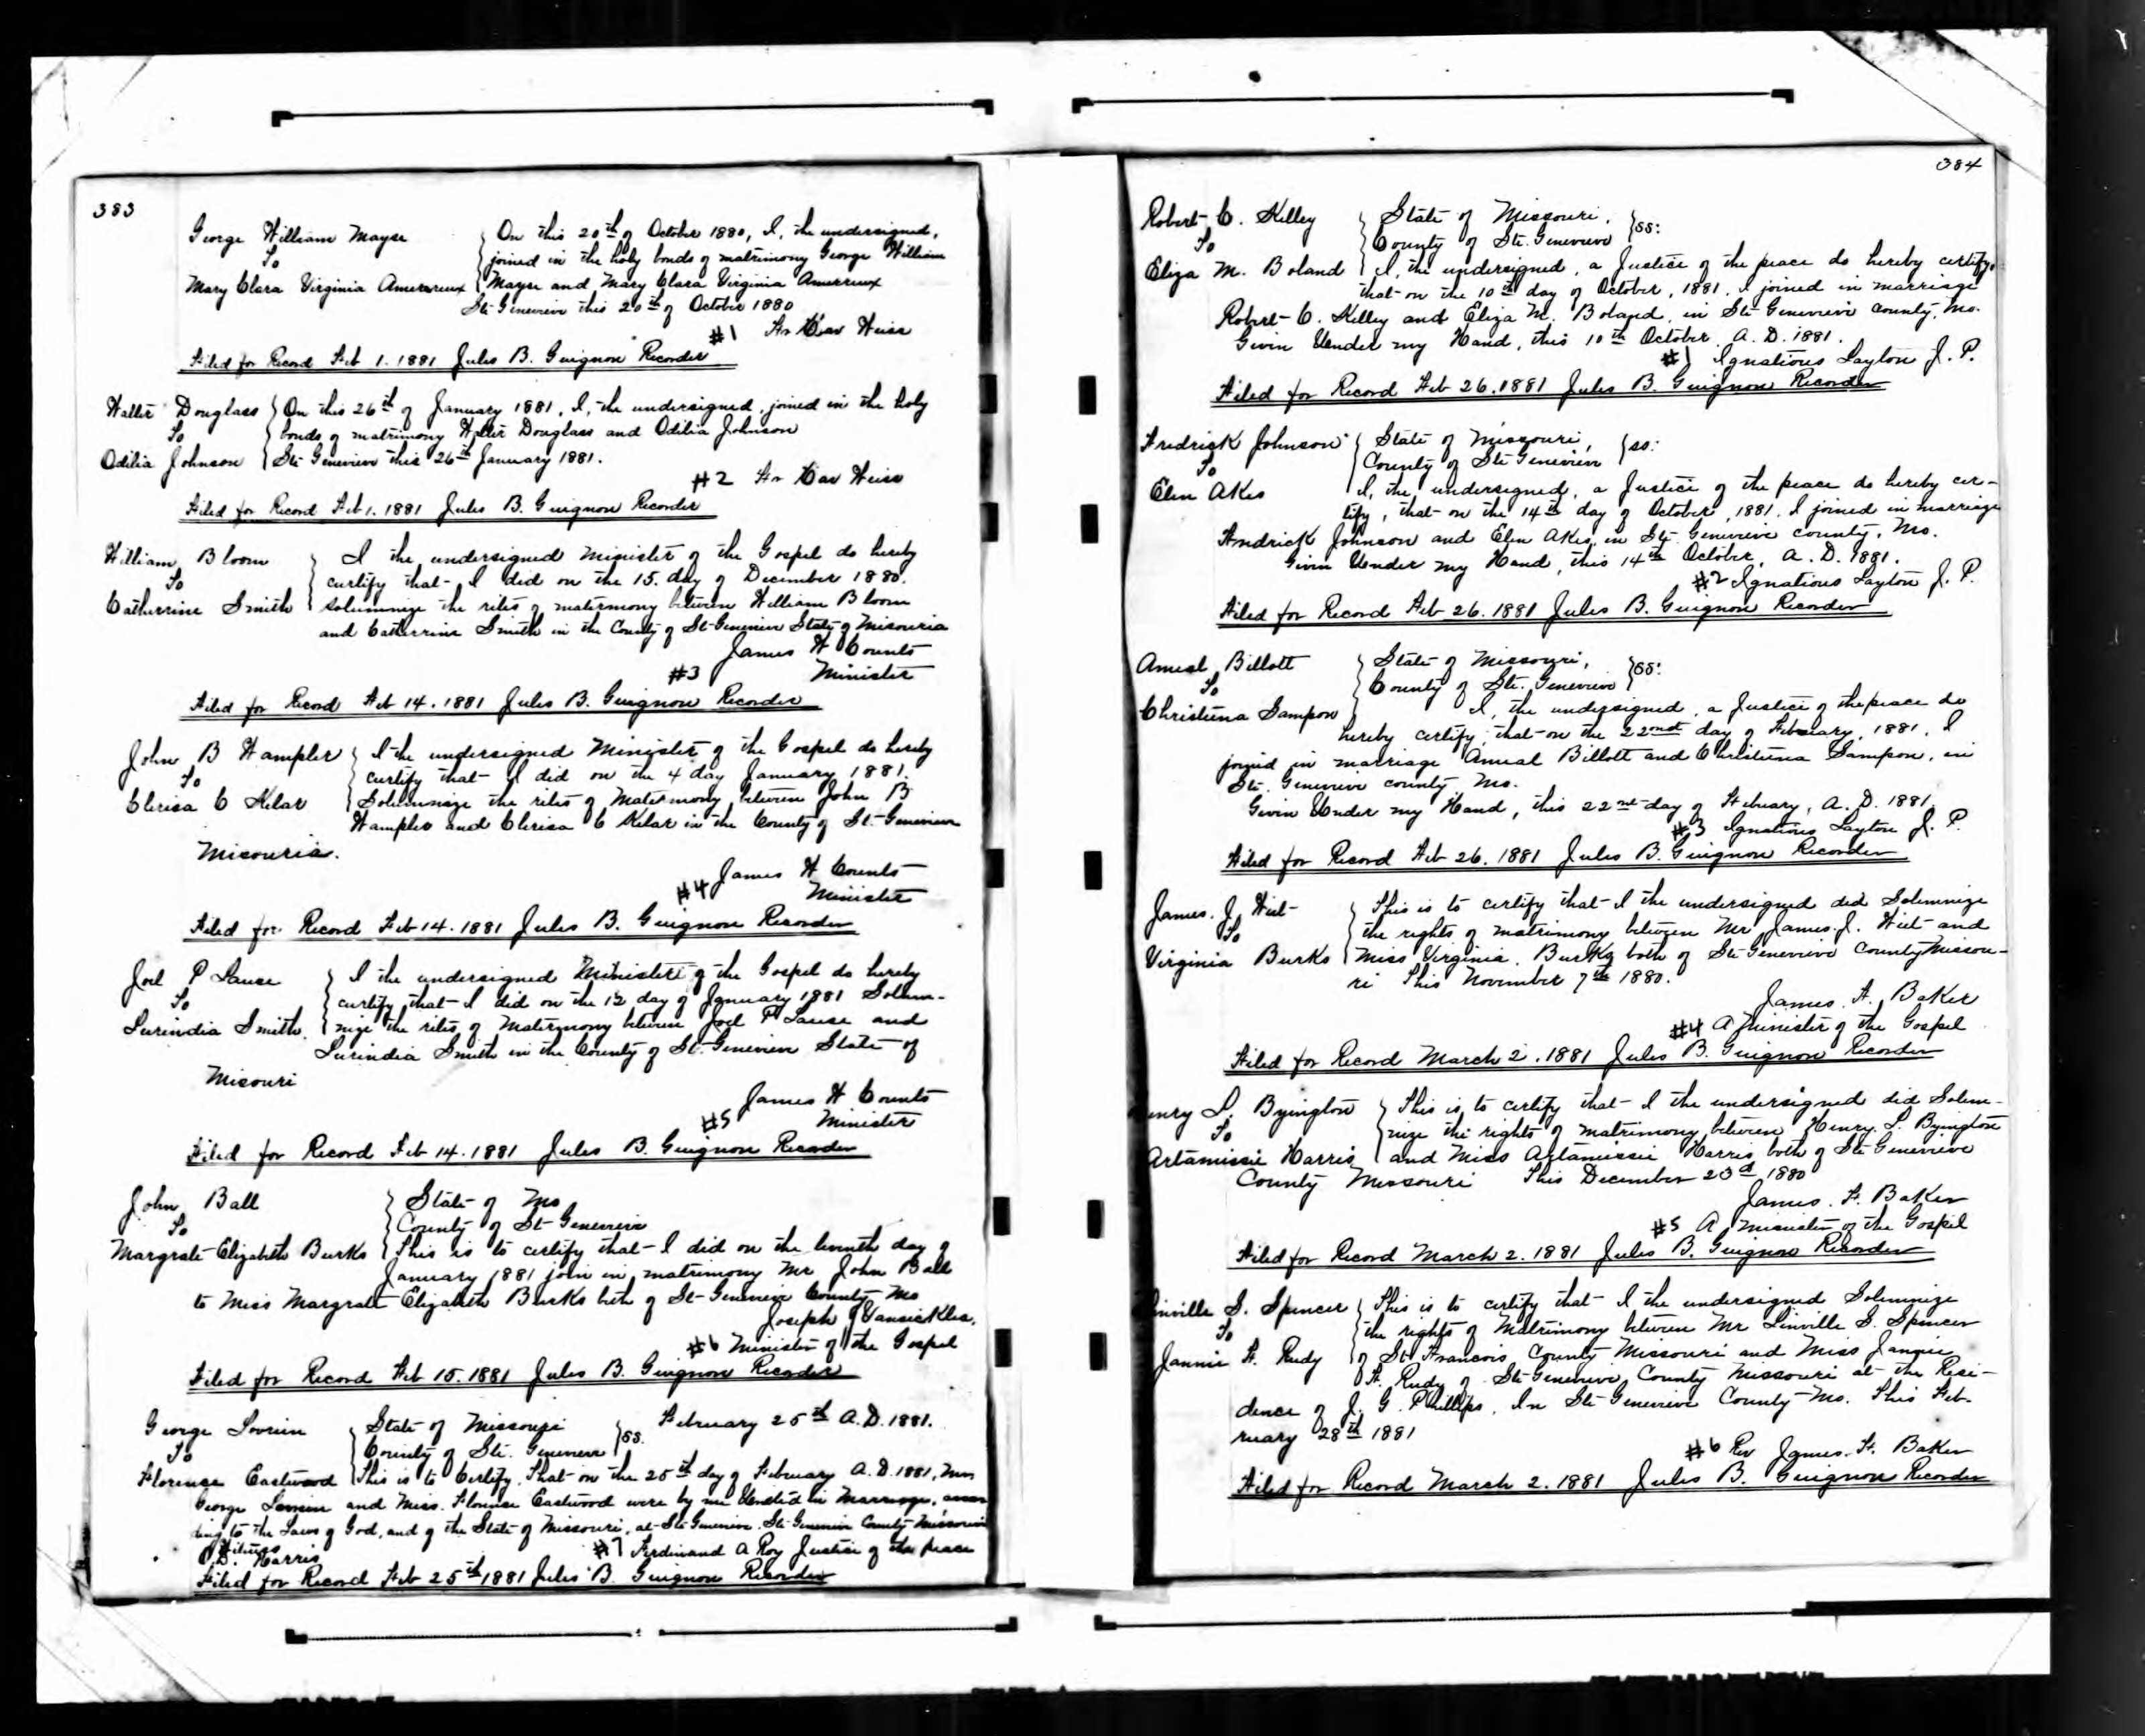 383
George William Mayse } On this 20th of October 1880, I, the undersigned,
To } joined in the holy bonds of matrimony George William
Mary Clara Virginia Amerreux } Mayse and Mary Clara Virginia Amerreux
Ste Genevieve this 20th of October 1880
#1 Fr Xav Weiss
Filed for Record Feb 1. 1881 Jules B. Guignon Recorder
Walter Douglass } On this 26th of January 1881, I, the undersigned, joined in the holy
To } bonds of matrimony Walter Douglass and Odilia Johnson
Odilia Johnson } Ste Genevieve this 26th January 1881.
#2 Fr Xav Weiss
Filed for Record Feb 1. 1881 Jules B. Guignon Recorder
William Bloom } I the undersigned Minister of the Gospel do hereby
To } curtify that I did on the 15. day of December 1880.
Catherrine Smith } Solumnize the rites of matermony between William Bloom
and Catherrine Smith in the County of St Genevieve State of Misouria
James W Counts
#3 Minister
Filed for Record Feb 14. 1881 Jules B. Guignon Recorder
John B Wampler } I the undersigned Minister of the Gospel do hereby
To } curtify that I did on the 4 day January 1881.
Clerisa C Kelar } Solumnize the rites of Matermony between John B
Wampler and Clerisa C Kelar in the County of St. Genevieve
Misouria.
James W Counts
#4 Minister
Filed for Record Feb 14. 1881 Jules B. Guignon Recorder
Joel P Lause } I the undersigned Minister of the Gospel do hereby
To } curtify that I did on the 12 day of January 1881 Solum-
Lurindia Smith. } nize the rites of Matermony between Joel P Lause and
Lurindia Smith in the County of St. Genevieve State of
Misouri
James W Counts
#5 Minister
Filed for Record Feb 14. 1881 Jules B. Guignon Recorder
John Ball } State of Mo
To } County of St Genevieve
Margrate Elizabeth Burks } This is to certify that I did on the
January 1881 join in matrimony Mr John Ball
to Miss Margratt Elizabeth Burks both of St Genevieve County Mo
Joseph J Vansickles.
#6 Minister of the Gospel
Filed for Record Feb 15. 1881 Jules B. Guignon Recorder
George } State of Missouri } ss. February 25th A.D. 1881.
To } County of Ste. Genevieve
Florence Eastwood } This is to Certify. That on the 25th day of February A.D. 1881,
George and Miss. Florence Eastwood were by me United in Marriage,
ding to the Laws of God, and of the State of Missouri, at Ste Genevieve. Ste Genevieve County Missouri
Witness
Harris #7 Ferdinand A Roy Justice of the peace
Filed for Record Feb 25th 1881 Jules B. Guignon Recorder
384
Robert C. Kelley } State of Missouri, } ss:
To } County of Ste. Genevieve
Eliza M. Boland } I, the undersigned, a Justice of the peace do hereby certify,
that on the 10th day of October, 1881. I joined in marriage
Robert C. Kelley and Eliza M. Boland, in Ste Genevieve County, Mo.
Given Under my Hand, this 10th October, A.D. 1881.
#1 Ignatious Layton J. P.
Filed for Record Feb 26. 1881 Jules B. Guignon Recorder
Fredrick Johnson } State of Missouri, } ss:
To } County of Ste Genevieve
Elen Akes } I, the undersigned, a Justice of the peace do hereby cer-
tify, that on the 14th day of October, 1881. I joined in marriage
Fredrick Johnson and Elen Akes, in Ste. Genevieve county, Mo.
Given Under my Hand, this 14th October, A.D. 1881.
#2 Ignatious Layton J. P.
Filed for Record Feb 26. 1881 Jules B. Guignon Recorder
Ameal Billott } State of Missouri, } ss:
To } County of Ste. Genevieve
Christeena Sampson } I, the undersigned, a Justice of the peace do
hereby certify, that on the 22nd day of February, 1881, I
joined in marriage Ameal Billott and Christeena Sampson, in
Ste. Genevieve county Mo.
Given Under my Hand, this 22nd day of February, A.D. 1881.
#3 Ignatious Layton J. P.
Filed for Record Feb 26. 1881 Jules B. Guignon Recorder
James. J. } This is to certify that I the undersigned did Solemnize
To } the rights of matrimony between Mr James. J. and
Virginia Burks } Miss Virginia. Burks both of Ste Genevieve County Missou-
ri This November 7th 1880.
James. F. Baker
#4 A Minister of the Gospel
Filed for Record March 2. 1881 Jules B. Guignon Recorder
enry L. Byington } This is to certify that I the undersigned did Solem-
To } nize the rights of matrimony between Henry. L. Byington
Artamissie Harris } and Miss Artamissie Harris both of Ste Genevieve
County Missouri This December 23d 1880
James. F. Baker
#5 A Minister of the Gospel
Filed for Record March 2. 1881 Jules B. Guignon Recorder
inville S. Spencer } This is to certify that I the undersigned Solemnize
To } the rights of Matrimony between Mr Linville S. Spencer
Jannie F. Rudy } of St Francois County Missouri and Miss Jannie
F. Rudy of Ste Genevieve County Missouri at the Resi-
dence of J. G. Phillips. In Ste Genevieve County Mo. This Feb-
ruary 28th 1881
#6 Rev James. F. Baker
Filed for Record March 2. 1881 Jules B. Guignon Recorder